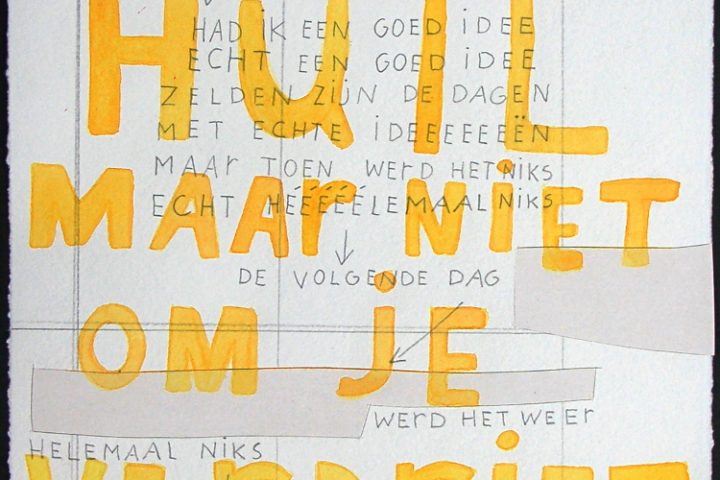 HUIL
HAD iK EEN GOED iDEE
ECHT EEN GOED iDEE
ZELDEN ZiJN DE DAGEN
MET ECHTE iDEEEEEEËN
MAAr TOEN WErD HET NiKS
ECHT HÉÉÉÉÉLEMAAL NiKS
MAAr NiET
DE VOLGENDE DAG
OM jE
WErD HET WEEr
HELEMAAL NiKS